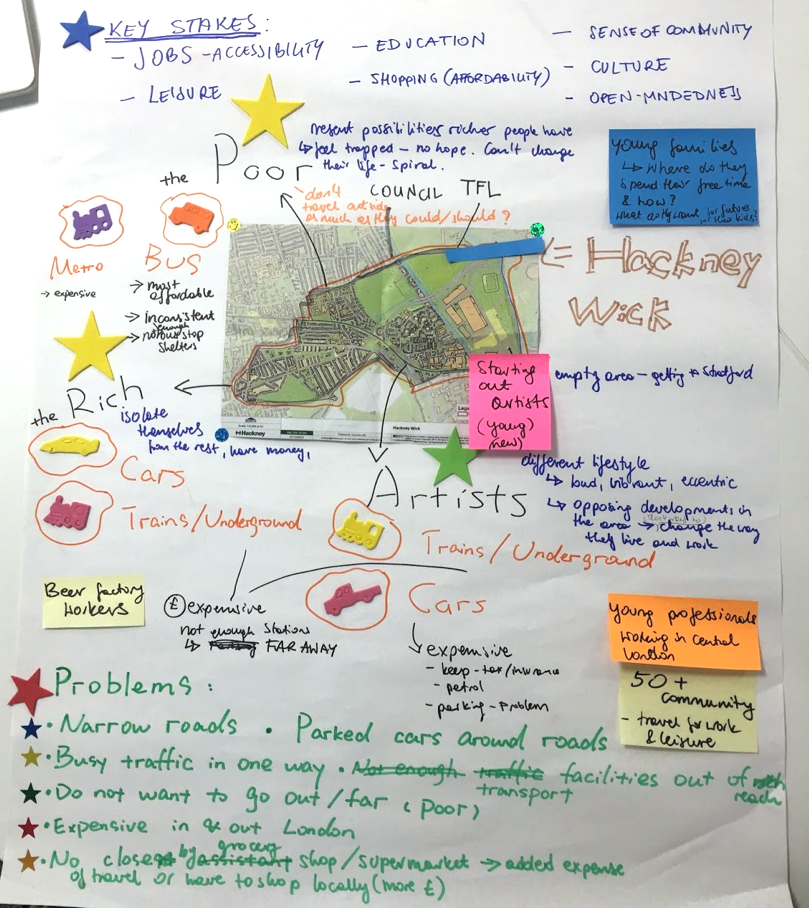 KEY STAKES:
- JOBS - ACCESSIBILITY
- LEISURE
- EDUCATION
- SHOPPING (AFFORDABILITY)
- SENSE OF COMMUNITY
- CULTURE
- OPEN-MNDEDNESS
the Poor
resent possibilities richer people have
↳ feel trapped - no hope. Can't change
their life - spiral.
don't
travel outside
as much as they could/should?
COUNCIL TFL
young families
↳ Where do they
spend their free time
& how?
what do they want for future
for their kids?
Metro
→ expensive
BUS
→ most
affordable
→ inconsistent
→ not enough bus stop
shelters
= Hackney
Wick
Hackney
Hackney Wick
Starting
out
artists
(young)
(new)
empty area - getting to Stratford
the Rich
isolate
themselves
from the rest, have money,
Cars
Trains/Underground
Artists
different lifestyle
↳ loud, vibrant, eccentric
↳ opposing developments in
the area → don't want to change the way
they live and work
Trains/Underground
Cars
Beer factory
workers
£ expensive
not enough stations
↳ FAR AWAY
expensive
- keep - tax/insurance
- petrol
- parking - problem
Young professionals
working in central
London
50+
community
- travel for work
& leisure
Problems:
• Narrow roads • Parked cars around roads
• Busy traffic in one way • Not enough traffic transport facilities out of reach
• Do not want to go out/far (poor)
• Expensive in & out London
• No close by assistant grocery shop/supermarket → added expense
of travel or have to shop locally (more £)